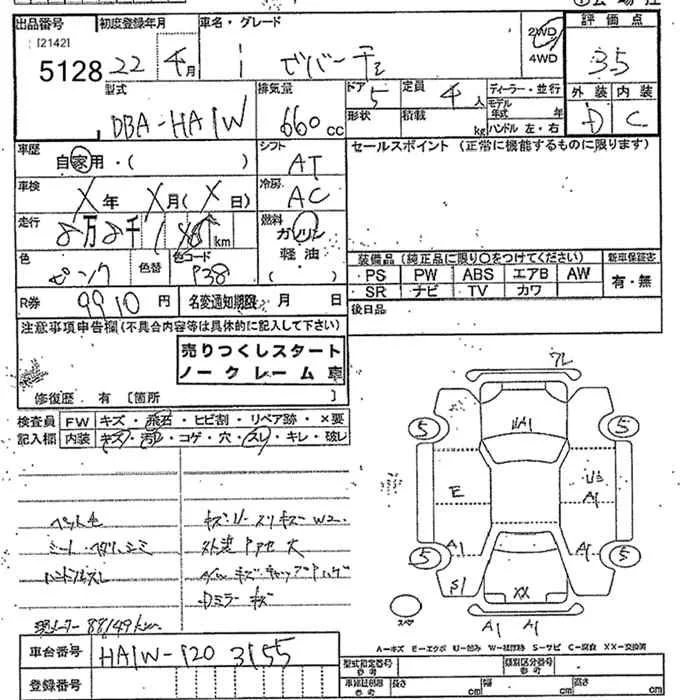 出品番号 初度登録年月 車名・グレード 評価点
[2142]
5128 22年 4月 i ビバーチェ 2WD 4WD 3.5
型式 排気量 ドア 定員 ディーラー・並行 外装 内装
DBA-HA1W 660cc 5 4人 モデル年式 年 D C
形状 積載 kg ハンドル 左・右
車歴 シフト セールスポイント (正常に機能するものに限ります)
自家用・( ) AT
車検 冷房
X年 X月(X日) AC
走行 燃料
8万8千1 km ガソリン
軽油
( )
色 色替 色コード 装備品 (純正品に限り○をつけてください) 新車保証書
ピンク P38 PS PW ABS エアB AW 有・無
SR ナビ TV カワ
R券 9910円 名変通知期限 月 日 後日品
注意事項申告欄(不具合内容等は具体的に記入して下さい)
売りつくしスタート
ノークレーム車
修復歴 有 〔箇所 〕
検査員記入欄 FW キズ・飛石・ヒビ割・リペア跡・×要
内装 キズ・汚れ・コゲ・穴・スレ・キレ・破レ
キズ・U・スリキズ W2
ハンドルスレ
Dミラーキズ
現メーター 88149km
車台番号 HA1W-120 3155
登録番号
フレ
UA1
5 5
E U3
A1
A1 A1
5 5
S1 XX
スペア
A1 A1
A-キズ E-エクボ U-凹み W-補修跡 S-サビ C-腐食 XX-交換済
型式指定番号 類別区分番号
参考
車検証記載 長さ cm 幅 cm 高さ cm
参考